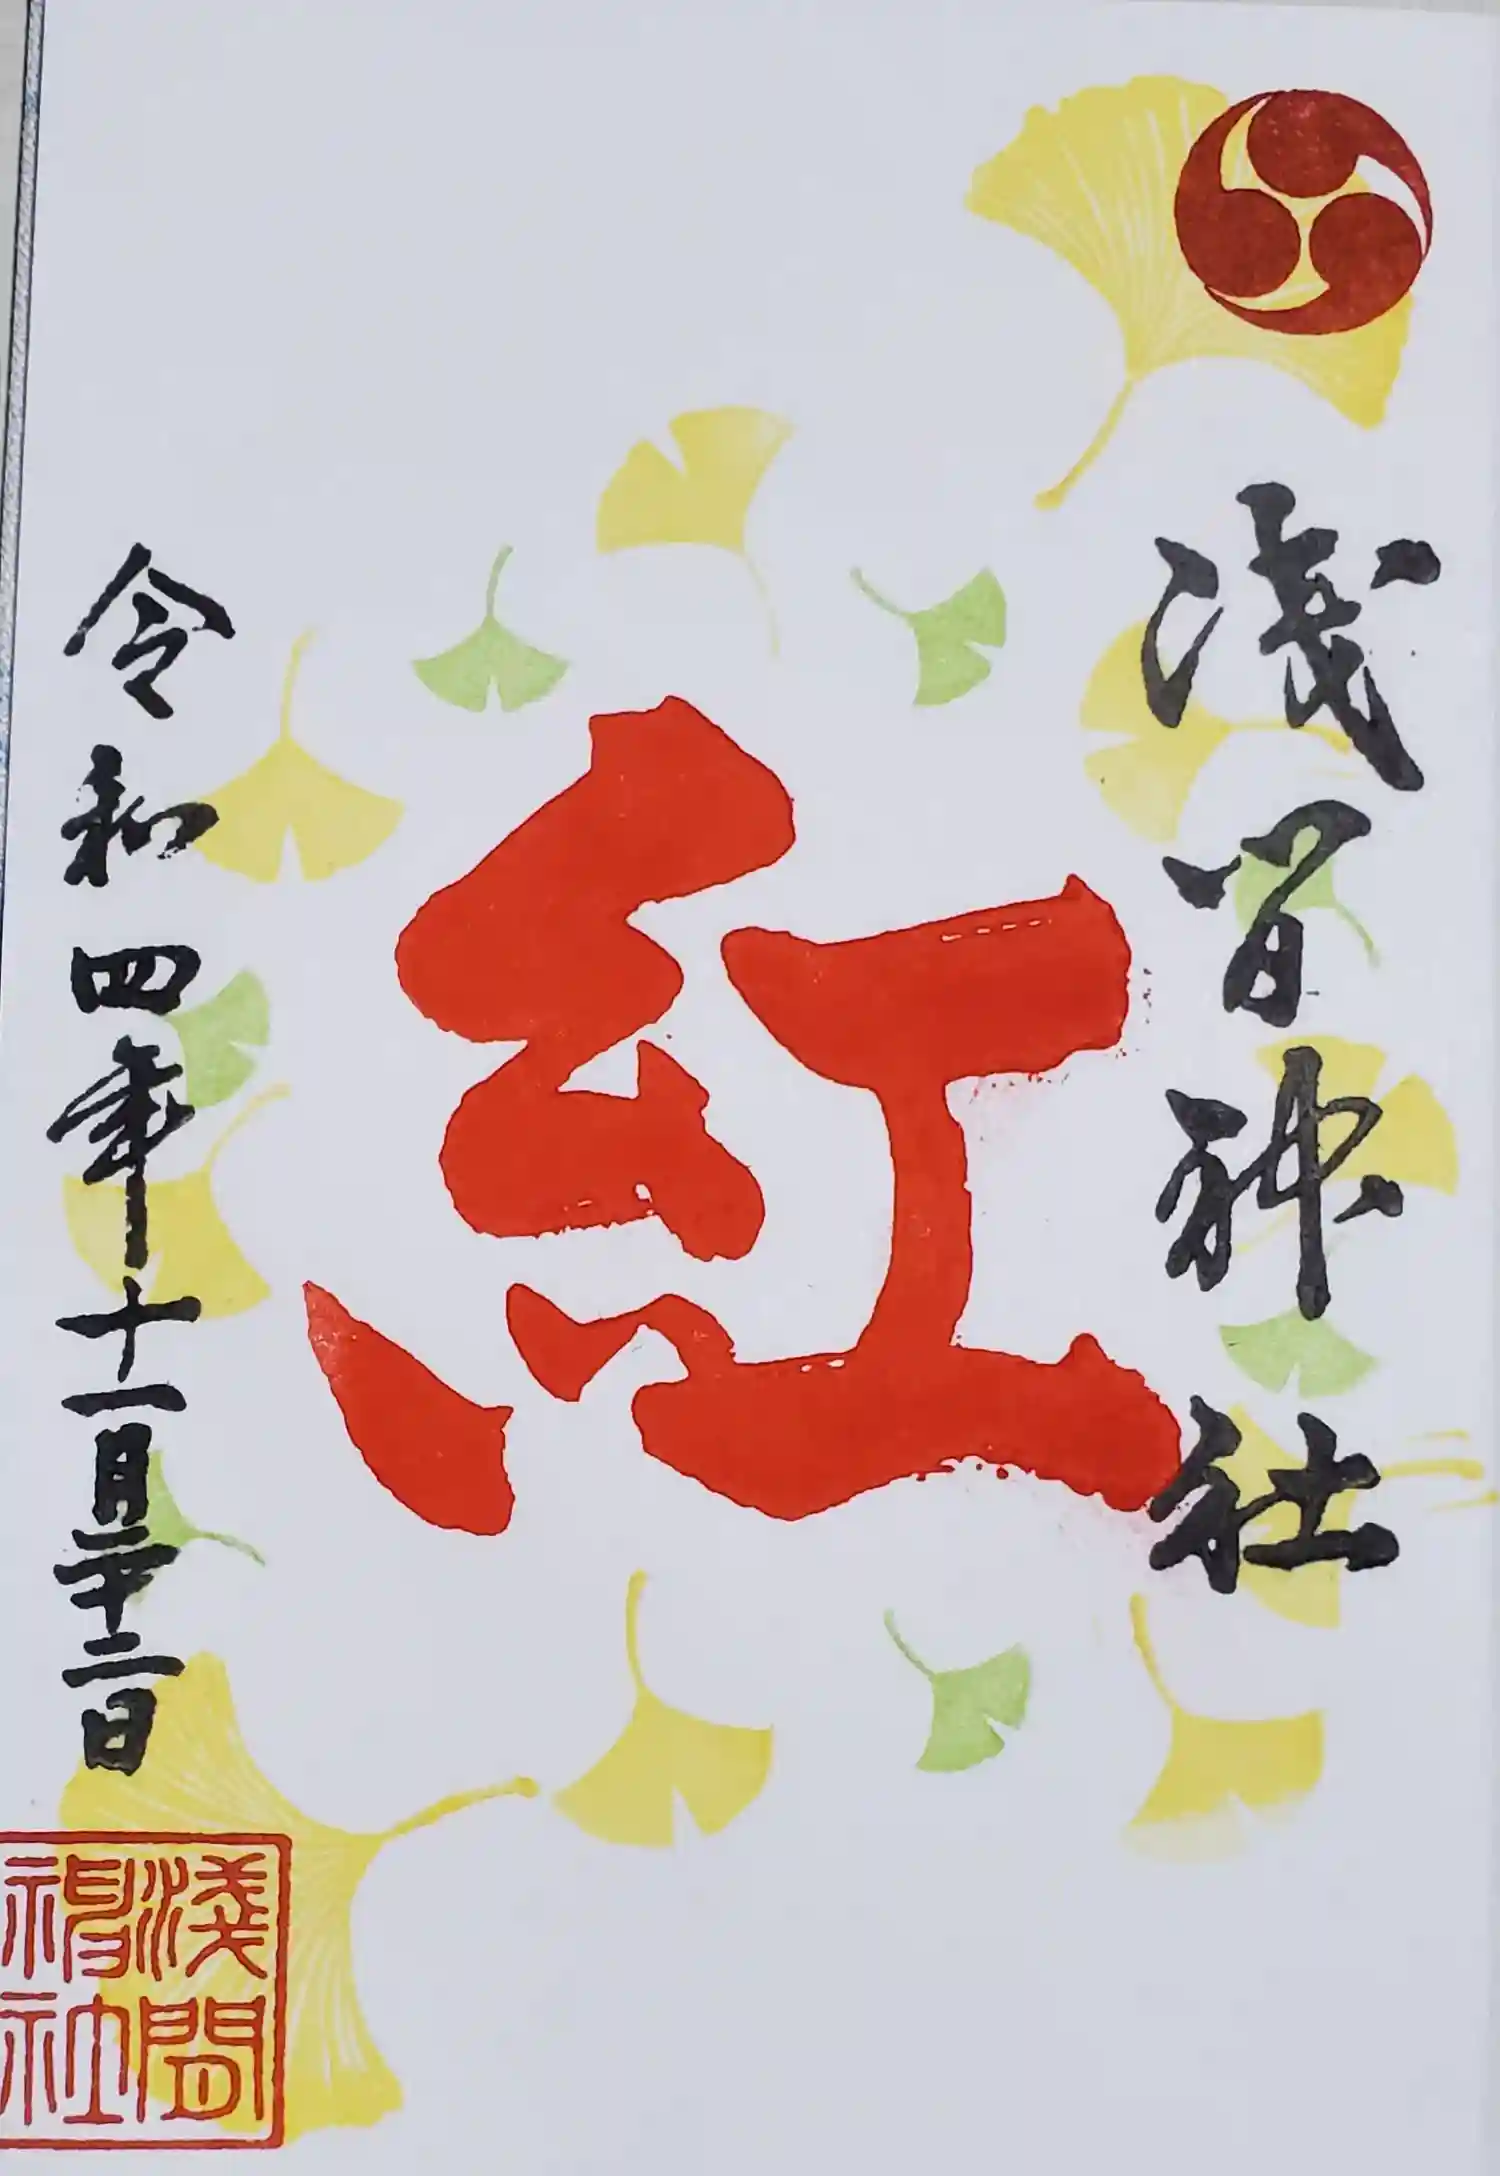 浅間神社
紅
令和四年十一月二十二日
浅間
神社